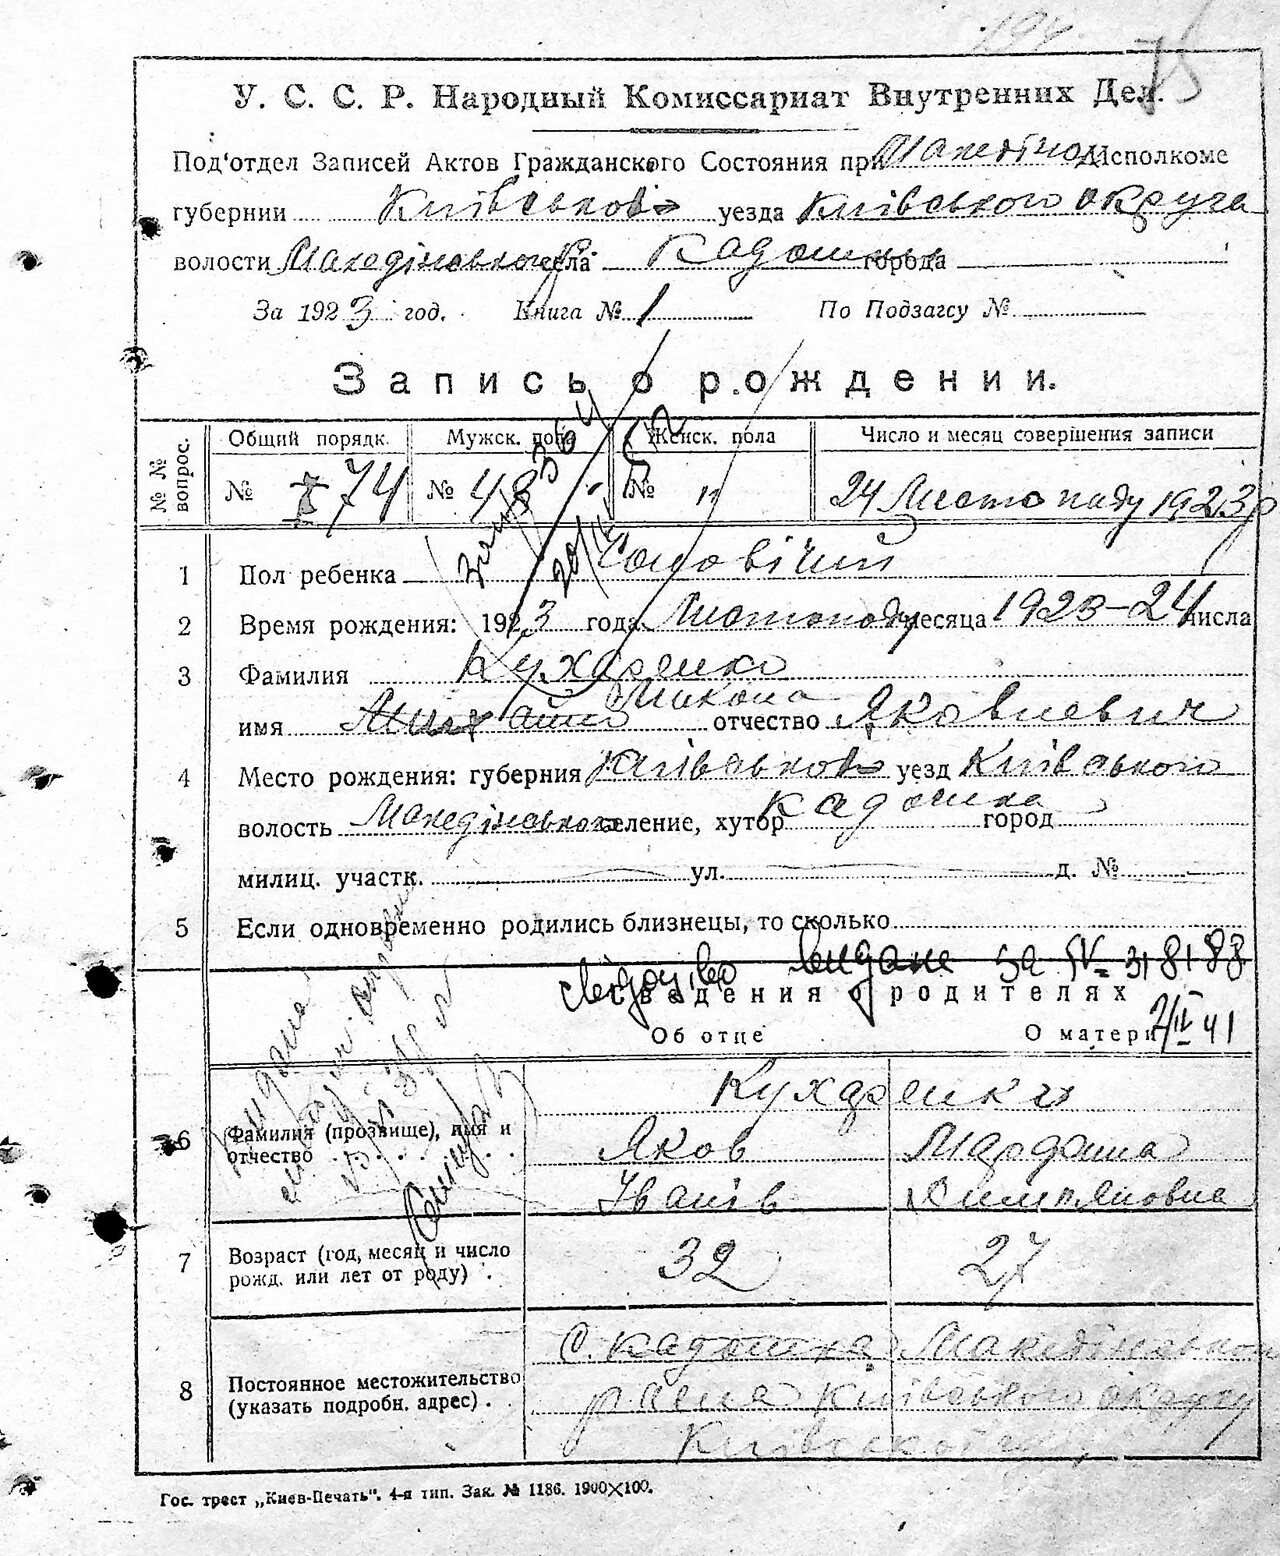 194
75
У. С. С. Р. Народный Комиссариат Внутренних Дел.
Под‘отдел Записей Актов Гражданского Состояния при Исполкоме
губернии Київської уезда Київського округа
волости Македінського р. села Кадомка города
За 1923 год. Книга № 1 По Подзагсу №
Запись о рождении.
№№ вопрос. Общий порядк. Мужск. пола Женск. пола Число и месяц совершения записи
№ 174 № 48 № " 24 Листопаду 1923 р
1 Пол ребенка Чоловічий
2 Время рождения: 1923 года Листопаду месяца 1923-24 числа
3 Фамилия Кухаренко
Микола
имя Михайло отчество Яковлевич
4 Место рождения: губерния Київської уезд Київського
волость Македінського селение, хутор Кадомка город
милиц. участк. ул. д. №
5 Если одновременно родились близнецы, то сколько
Свідоцтво видане за IV- 318183
Сведения о родителях
Об отце О матери 2/IV 41
Кухаренки
6 Фамилия (прозвище), имя и Яков
отчество Іванів
7 Возраст (год, месяц и число 32 27
рожд. или лет от роду).
С. Кадомка Македінського
8 Постоянное местожительство района Київського округу
(указать подробн. адрес). Київської
Гос. трест „Киев-Печать“. 4-я тип. Зак. № 1186. 1900×100.